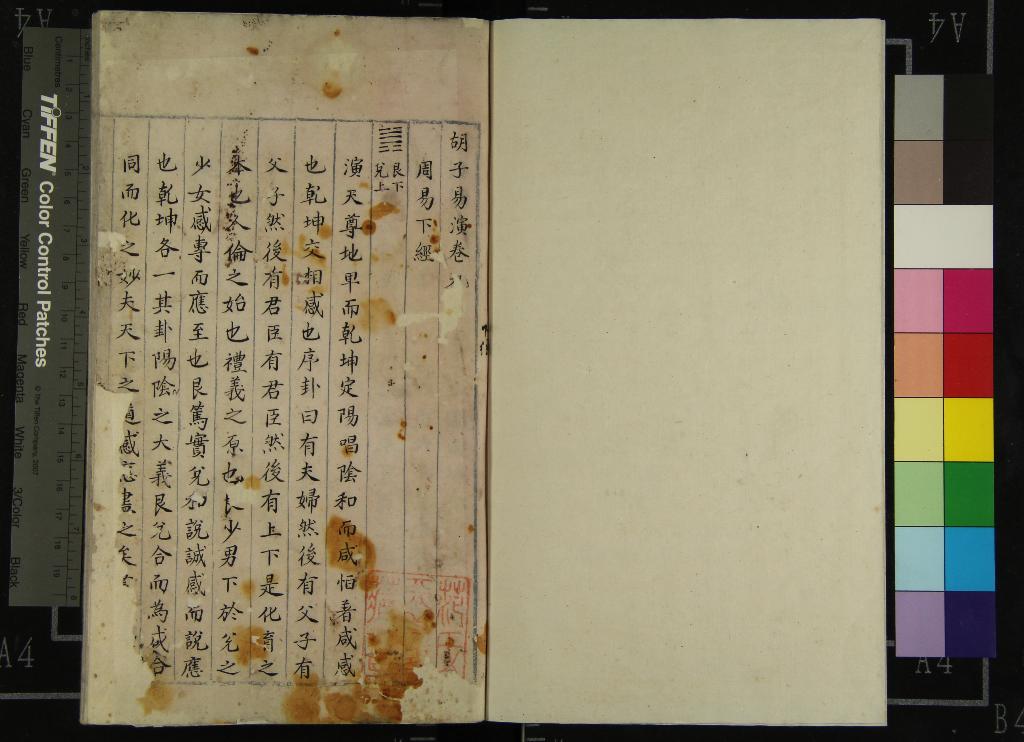 胡子易演卷九
周易下經
䷞ 艮下
兌上
演天尊地卑而乾坤定陽唱陰和而咸恒著咸感
也乾坤交相感也序卦曰有夫婦然後有父子有
父子然後有君臣有君臣然後有上下是化育之
本也人倫之始也禮義之原也艮少男下於兌之
少女感專而應至也艮篤實兌和說誠感而說應
也乾坤各一其卦陽陰之大義艮兌合而為咸合
同而化之妙夫天下之道感應盡之矣
TIFFEN Color Control Patches
© The Tiffen Company, 2007
Centimetres
Blue
Cyan
Green
Yellow
Red
Magenta
White
3/Color
Black
A4
A4
A4
A4
B4